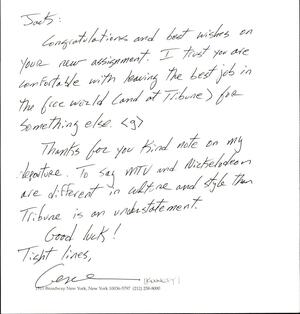 Jack:
Congratulations and best wishes on
your new assignment. I trust you are
comfortable with leaving the best job in
the free world (and at Tribune) for
something else. <g>
Thanks for you kind note on my
departure. To say MTV and Nickelodeon
are different in culture and style than
Tribune is an understatement.
Good luck!
Tight lines,
1515 Broadway New York, New York 10036-5797 (212) 258-8000